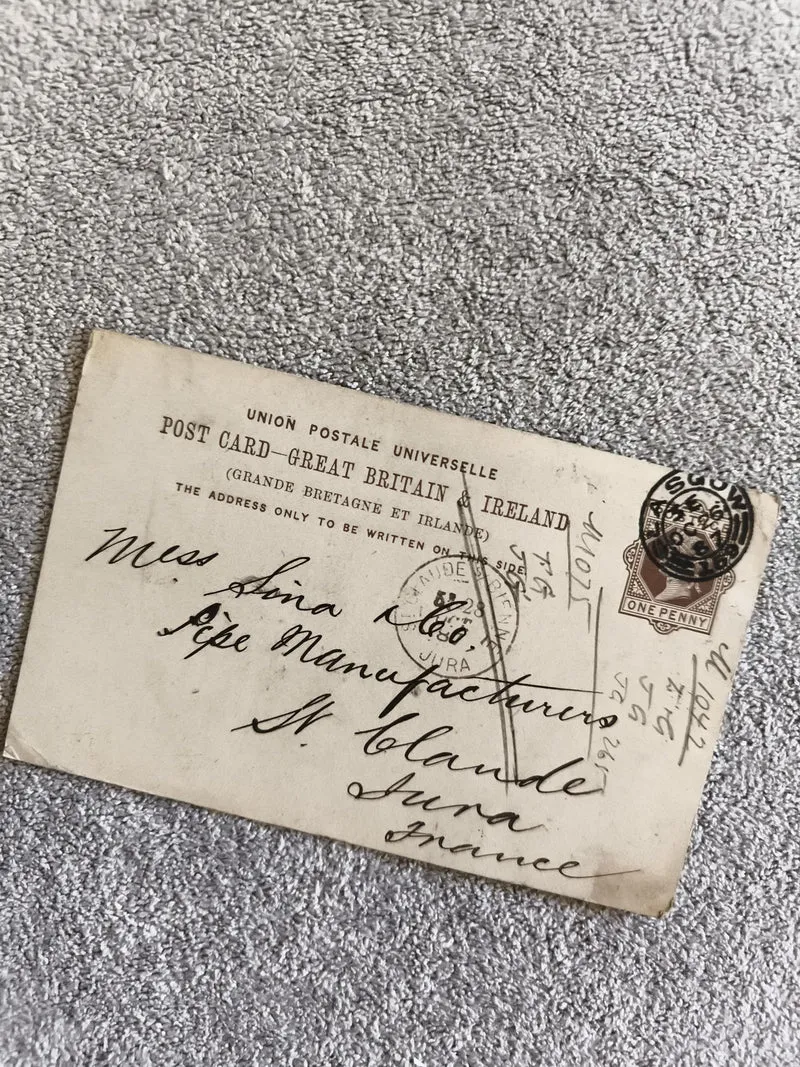 UNION POSTALE UNIVERSELLE
POST CARD—GREAT BRITAIN & IRELAND
(GRANDE BRETAGNE ET IRLANDE)
THE ADDRESS ONLY TO BE WRITTEN ON THIS SIDE.
GLASGOW
ONE PENNY
CLAUDE
28
JURA
Mess Sina & Co,
Pipe Manufacturers
St. Claude
Jura
France
M1075
JG
M 1042
JG
JG 265